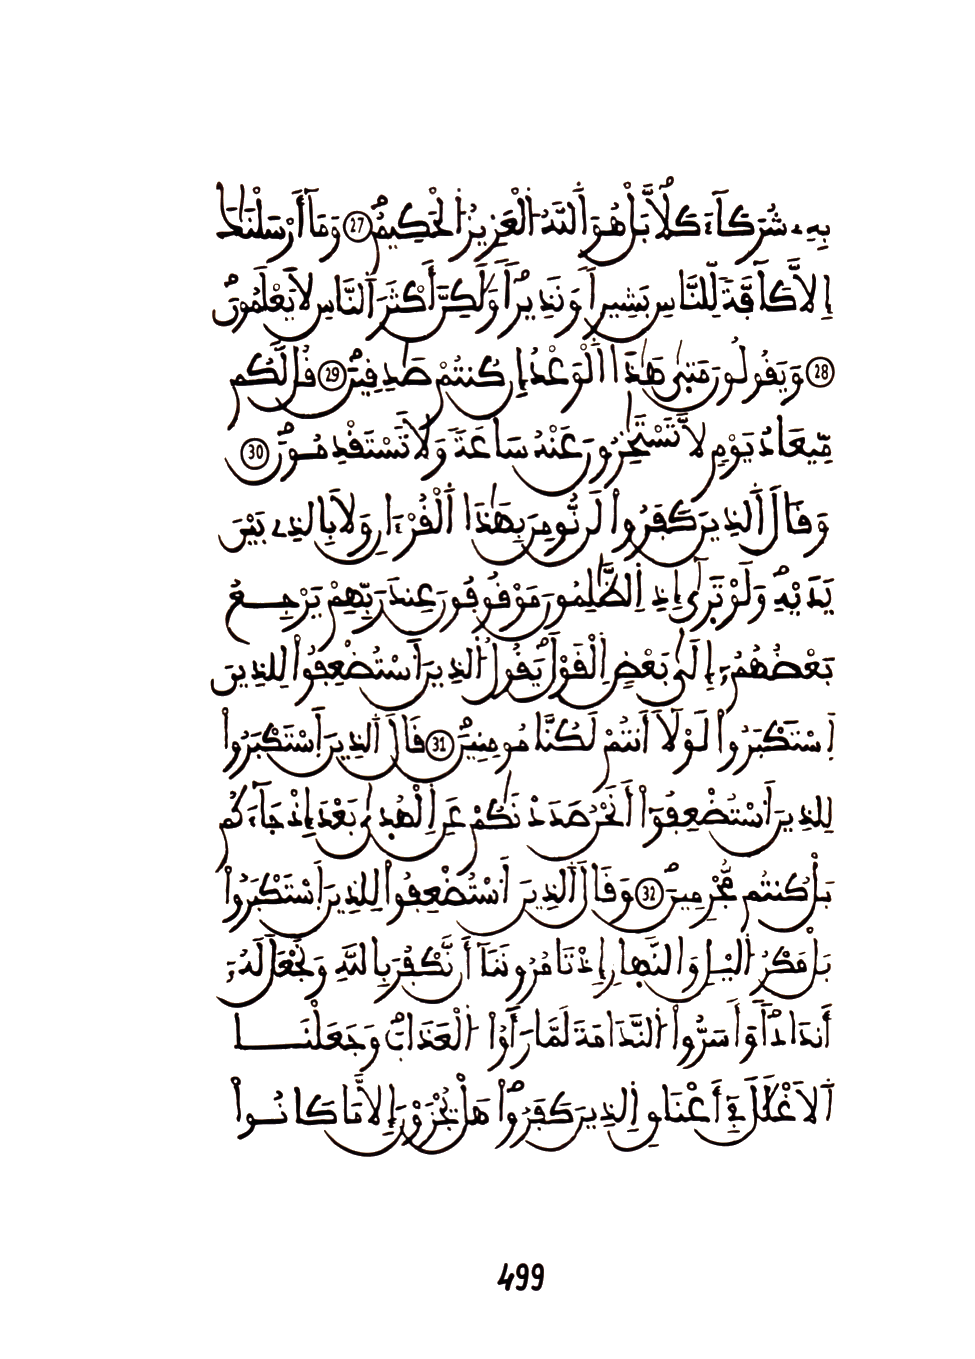 بِهِۦ شُرَكَآءَ كَلَّا بَلْ هُوَ اَ۬للَّهُ اُ۬لْعَزِيزُ اُ۬لْحَكِيمُۖ 27 وَمَآ أَرْسَلْنَٰكَ
إِلَّا كَآفَّةٗ لِّلنَّاسِ بَشِيراٗ وَنَذِيراٗ وَلَٰكِنَّ أَكْثَرَ اَ۬لنَّاسِ لَا يَعْلَمُونَۖ
28 وَيَقُولُونَ مَت۪يٰ هَٰذَا اَ۬لْوَعْدُ إِن كُنتُمْ صَٰدِقِينَۖ 29 قُل لَّكُم
مِّيعَادُ يَوْمٖ لَّا تَسْتَٰٔخِرُونَ عَنْهُ سَاعَةٗ وَلَا تَسْتَقْدِمُونَۖ 30
وَقَالَ اَ۬لذِينَ كَفَرُواْ لَن نُّومِنَ بِهَٰذَا اَ۬لْقُرْءَانِ وَلَا بِالذِے بَيْنَ
يَدَيْهِۖ وَلَوْ تَر۪يٰٓ إِذِ اِ۬لظَّٰلِمُونَ مَوْقُوفُونَ عِندَ رَبِّهِمْ يَرْجِعُ
بَعْضُهُمُۥٓ إِلَيٰ بَعْضٍ اِ۬لْقَوْلَۖ يَقُولُ اُ۬لذِينَ اَ۟سْتُضْعِفُواْ لِلذِينَ
اَ۪سْتَكْبَرُواْ لَوْلَآ أَنتُمْ لَكُنَّا مُومِنِينَۖ 31 قَالَ اَ۬لذِينَ اَ۪سْتَكْبَرُواْ
لِلذِينَ اَ۟سْتُضْعِفُوٓاْ أَنَحْنُ صَدَدْنَٰكُمْ عَنِ اِ۬لْهُد۪يٰ بَعْدَ إِذْ جَآءَكُم
بَلْ كُنتُم مُّجْرِمِينَۖ 32 وَقَالَ اَ۬لذِينَ اَ۟سْتُضْعِفُواْ لِلذِينَ اَ۪سْتَكْبَرُواْ
بَلْ مَكْرُ اُ۬ليْلِ وَالنَّه۪ارِ إِذْ تَامُرُونَنَآ أَن نَّكْفُرَ بِاللَّهِ وَنَجْعَلَ لَهُۥٓ
أَندَاداٗۖ وَأَسَرُّواْ اُ۬لنَّدَامَةَ لَمَّا رَأَوُاْ اُ۬لْعَذَابَۖ وَجَعَلْنَا
اَ۬لَاغْلَٰلَ فِےٓ أَعْنَاقِ اِ۬لذِينَ كَفَرُواْۖ هَلْ يُجْزَوْنَ إِلَّا مَا كَانُواْ
499